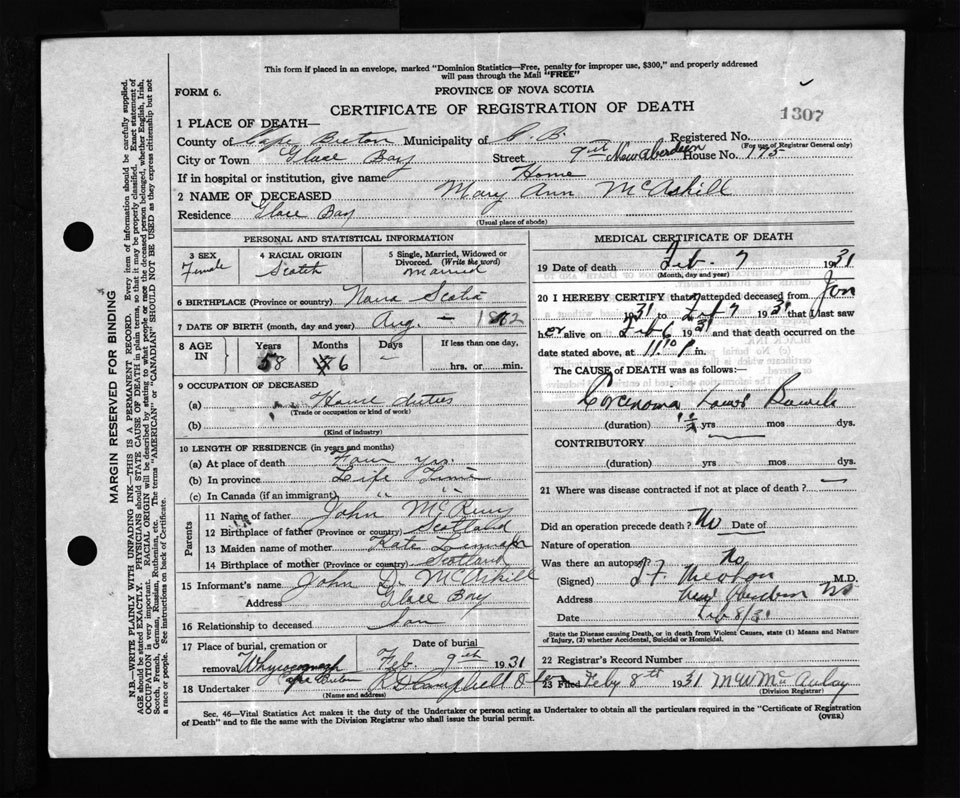 This form if placed in an envelope, marked "Dominion Statistics—Free, penalty for improper use, $300," and properly addressed
will pass through the Mail "FREE"
FORM 6.
PROVINCE OF NOVA SCOTIA
CERTIFICATE OF REGISTRATION OF DEATH
1307
1 PLACE OF DEATH—
County of Cape Breton Municipality of C. B. Registered No.
(For use of Registrar General only)
City or Town Glace Bay Street 9th New Aberdeen House No. 195
If in hospital or institution, give name Home
2 NAME OF DECEASED Mary Ann McAskill
Residence Glace Bay
(Usual place of abode)
PERSONAL AND STATISTICAL INFORMATION
3 SEX Female
4 RACIAL ORIGIN Scotch
5 Single, Married, Widowed or Divorced. (Write the word) married
6 BIRTHPLACE (Province or country) Nova Scotia
7 DATE OF BIRTH (month, day and year) Aug. — 1872
8 AGE IN Years 58 Months 6 Days —
If less than one day,
hrs. or min.
9 OCCUPATION OF DECEASED
(a) House duties
(Trade or occupation or kind of work)
(b)
(Kind of industry)
10 LENGTH OF RESIDENCE (in years and months)
(a) At place of death Four yrs.
(b) In province Life Time
(c) In Canada (if an immigrant) " "
Parents
11 Name of father John
12 Birthplace of father (Province or country) Scotland
13 Maiden name of mother Kate
14 Birthplace of mother (Province or country) Scotland
15 Informant's name John D. McAskill
Address Glace Bay
16 Relationship to deceased Son
17 Place of burial, cremation or removal Whycocomagh Cape Breton
Date of burial Feb. 9th 1931
18 Undertaker R D Campbell
(Name and address)
MEDICAL CERTIFICATE OF DEATH
19 Date of death Feb. 7 1931
(Month, day and year)
20 I HEREBY CERTIFY that I attended deceased from Jan
1931 to Feb 7 1931 that I last saw
her alive on Feb 6 1931 and that death occurred on the
date stated above, at 11.10 P m.
The CAUSE of DEATH was as follows:—
Carcinoma Bowels
(duration) 1½ yrs mos dys.
CONTRIBUTORY
(duration) yrs mos dys.
21 Where was disease contracted if not at place of death? —
Did an operation precede death? No Date of
Nature of operation
Was there an autopsy? No
(Signed) M.D.
Address New Aberdeen NS
Date Feb 8/31
State the Disease causing Death, or in death from Violent Causes, state (1) Means and Nature
of Injury, (2) whether Accidental, Suicidal or Homicidal.
22 Registrar's Record Number
23 Filed Feby 8th 1931 M W McAulay
(Division Registrar)
Sec. 46—Vital Statistics Act makes it the duty of the Undertaker or person acting as Undertaker to obtain all the particulars required in the "Certificate of Registration
of Death" and to file the same with the Division Registrar who shall issue the burial permit.
(OVER)
MARGIN RESERVED FOR BINDING
N.B.—WRITE PLAINLY WITH UNFADING INK—THIS IS A PERMANENT RECORD. Every item of information should be carefully supplied.
AGE should be stated EXACTLY. PHYSICIANS should STATE CAUSE OF DEATH in plain terms, so that it may be properly classified. Exact statement of
OCCUPATION is very important. RACIAL ORIGIN will be described by stating to what people or race the deceased person belonged, whether English, Irish,
Scotch, French, German, Russian, Ruthenian, etc. The terms "AMERICAN" or "CANADIAN" SHOULD NOT BE USED as they express citizenship but not
a race or people. See instructions on back of Certificate.